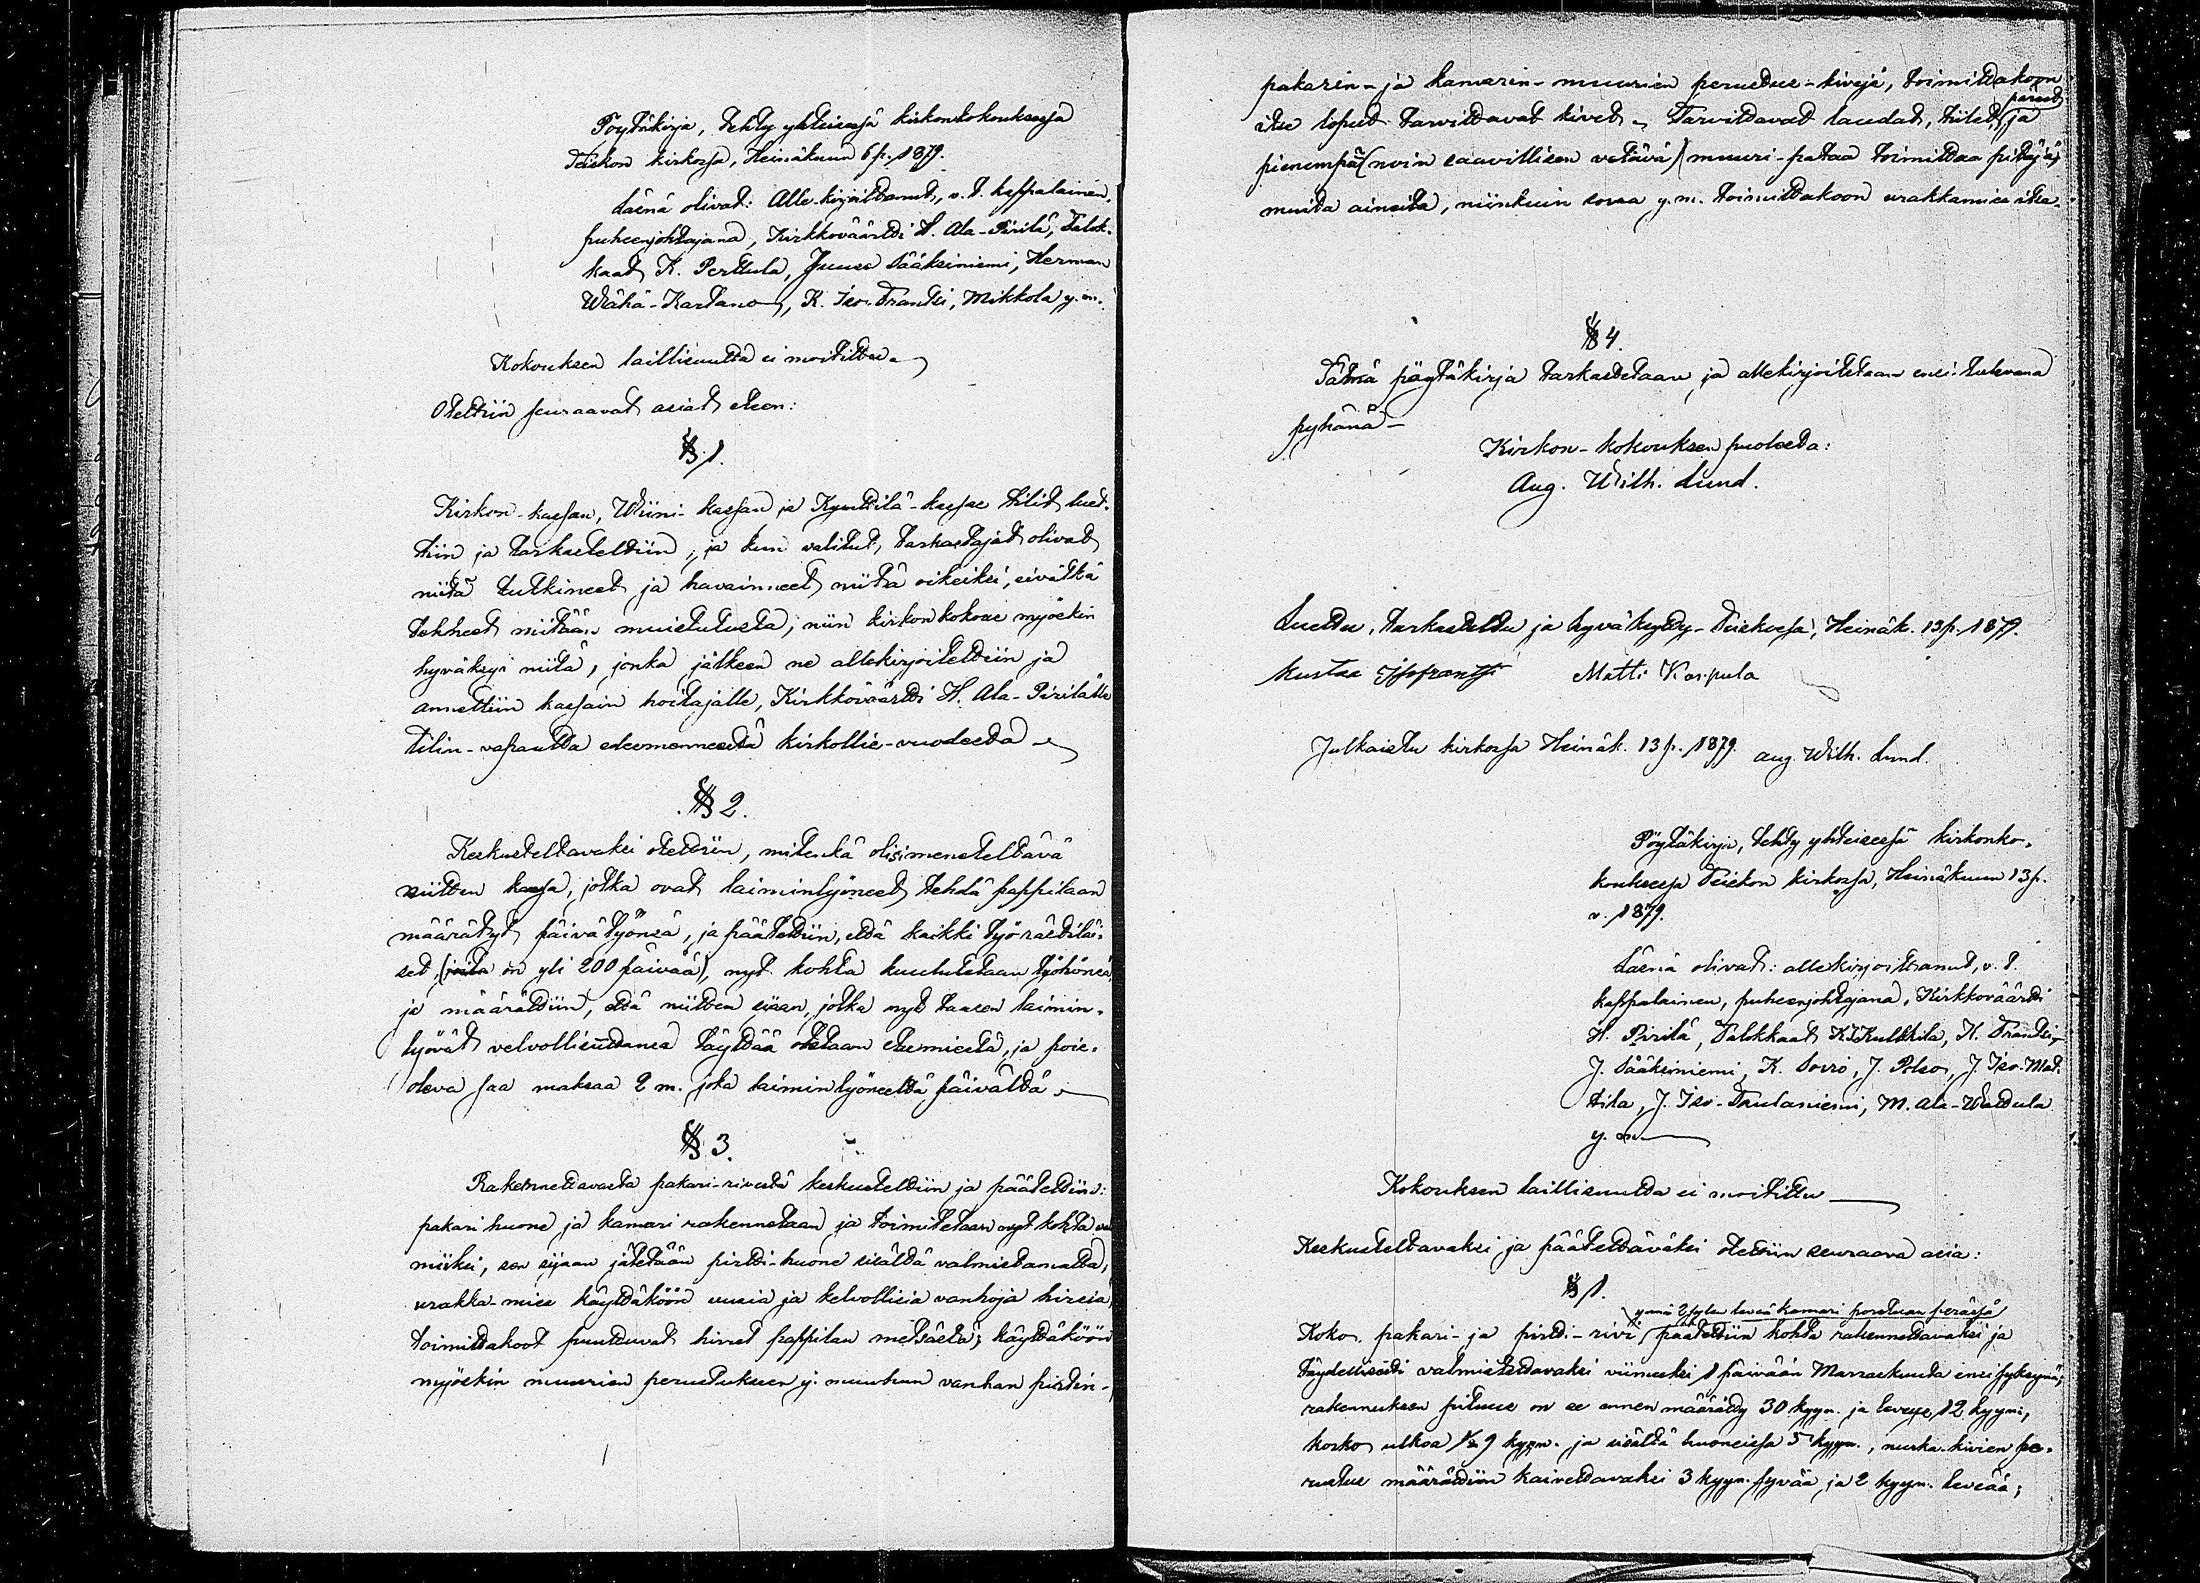 Pöytäkirja, tehty yhteisessä kirkonkokouksessa
Teiskon kirkossa, Heinäkuun 6 p. 1879.
Läsnä olivat: Allekirjoittanut, v. t. kappalainen,
puheenjohtajana, Kirkkoväärdi H. Ala-Pirilä, Talok-
kaat K. Perttula, Juuse Sääksiniemi, Herman
Wähä-Kartano, K. Iso-Frantsi, Mikkola y. m.
Kokouksen laillisuutta ei moitittu.
Otettiin seuraavat asiat eteen:
§ 1.
Kirkon-kassan, Wiini-kassan ja Kynttilä-kassan tilit luet-
tiin ja tarkasteltiin, ja kun valitut tarkastajat olivat
niitä tutkineet ja havainneet niitä oikeiksi, eivätkä
tehneet mitään muistutusta, niin kirkonkokous myöskin
hyväksyi niitä, jonka jälkeen ne allekirjoitettiin ja
annettiin kassain hoitajalle, Kirkkoväärdi H. Ala-Pirilälle
tilin-vapautta edesmenneestä kirkollis-vuodesta
§ 2.
Keskusteltavaksi otettiin, mitenkä olisi meneteltävä
niitten kanssa, jotka ovat laiminlyöneet tehdä pappilaan
määrätyt päivätyönsä, ja päätettiin, että kaikki työ-rästiläi-
set, (joita on yli 200 päivää), nyt kohta kuulutetaan työhönsä,
ja määrättiin, että niitten sijaan, jotka nyt taasen laimin-
lyövät velvollisuuttansa täyttää otetaan etumiestä, ja pois-
oleva saa maksaa 2 m. joka laiminlyöneeltä päivältä
§ 3.
Rakennettavasta pakari-rivistä keskusteltiin ja päätettiin:
pakari huone ja kamari rakennetaan ja toimitetaan nyt kohta val-
miiksi, sen sijaan jätetään pirtti-huone sisältä valmistamatta,
urakka-mies käyttäköön uusia ja kelvollisia vanhoja hirsiä,
toimittakoot puuttuvat hirret pappilan metsästä; käyttäköön
myöskin muurien perustukseen y. muuhun vanhan pirtin-
pakarin- ja kamarin-muurien perustus-kivejä, toimittakoon
itse loput tarvittavat kivet. Tarvittavat laudat, tiilet, päreet ja
pienempää (noin saavillisen vetävä) muuri-pataa toimittaa pitäjä;
muita aineita, niinkuin savea y. m. toimittakoon urakkamies itse.
§ 4.
Tätnä pöytäkirja tarkastetaan ja allekirjoitetaan ensi tulevana
pyhänä
Kirkon-kokouksen puolesta:
Aug. Wilh. Lund.
Luettu, tarkastettu ja hyväksytty Teiskossa, Heinäk. 13 p. 1879.
Kustaa Isofrantsi Matti Karpula
Julkaistu kirkossa Heinäk. 13 p. 1879. Aug. Wilh. Lund.
Pöytäkirja, tehty yhteisessä kirkonko-
kouksessa Teiskon kirkossa, Heinäkuun 13 p.
v. 1879.
Läsnä olivat: allekirjoittanut, v. t.
kappalainen, puheenjohtajana, Kirkkoväärdi
H. Pirilä, Talokkaat K. Kulkkila, K. Frantsi,
J. Sääksiniemi, K. Soiro, J. Polso, J. Iso-Mat-
tila, J. Iso-Taulaniemi, M. Ala-Wattula
y. m.
Kokouksen laillisuutta ei moitittu
Keskusteltavaksi ja päätettäväksi otettiin seuraava asia:
§ 1.
ynnä 2 sylen leveä kamari porstuan perässä
Koko pakari- ja pirtti-rivi päätettiin kohta rakennettavaksi ja
täydellisesti valmistettavaksi viimeksi 1 päivään Marraskuuta ensi syksynä;
rakennuksen pituus on se ennen määrätty 30 kyyn. ja leveys 12 kyyn.,
korko ulkoa 9 kyyn. ja sisältä huoneissa 5 kyyn., nurka-kivien pe-
rustus määrättiin kaivettavaksi 3 kyyn. syvää ja 2 kyyn. leveää;